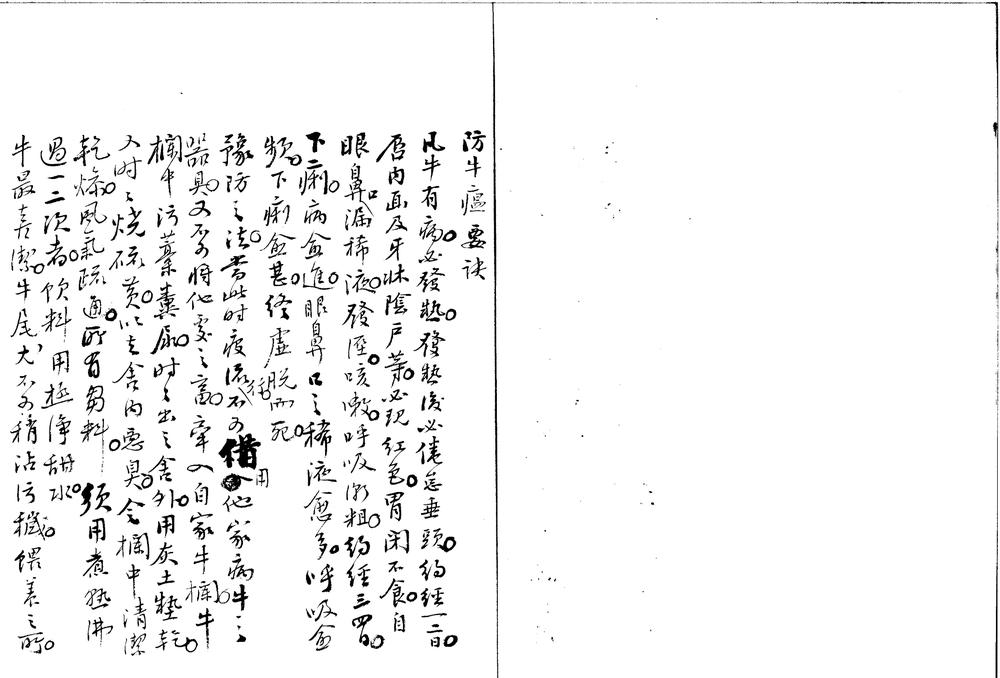 防牛瘟要诀
凡牛有病必發熱發熱後必倦怠垂頭約經一二日
唇内面及牙牀陰戸等必现紅色胃闲不食自
眼鼻口漏稀液發痙咳嗽呼吸漸粗約經三四日
下二痢病愈進眼鼻口之稀液愈多呼吸愈
頻下痢愈甚終虚脱而死
豫防之法當此時疫流行不可借用他家病牛之
器具又不可將他處之畜牽入自家牛欄牛
欄中污藁糞尿時々出之舍外用灰土墊乾
又時々烧硫黄以去舍内悪臭令欄中清潔
乾燥風氣疏通所有芻料须用煮熟沸
過一二次者飲料用極浄甜水
牛最喜潔牛尾大不可稍沾污穢餵養之所